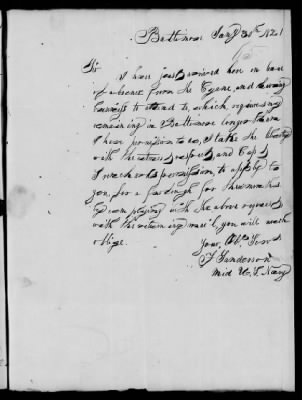 Baltimore Jany 31st 1821
Sir
I have just arrived here on leave
of absence from the Cyane, and having
business to attend to, which, requires my
remaining in Baltimore longer than
I have permission to do, I take the liberty
with the utmost respect and
permission, to apply to
you, for a furlough for three months
By complying with the above request
with the returning mail, you will much
oblige.
Your Obt. Servt
J Sanderson
Mid U. S. Navy